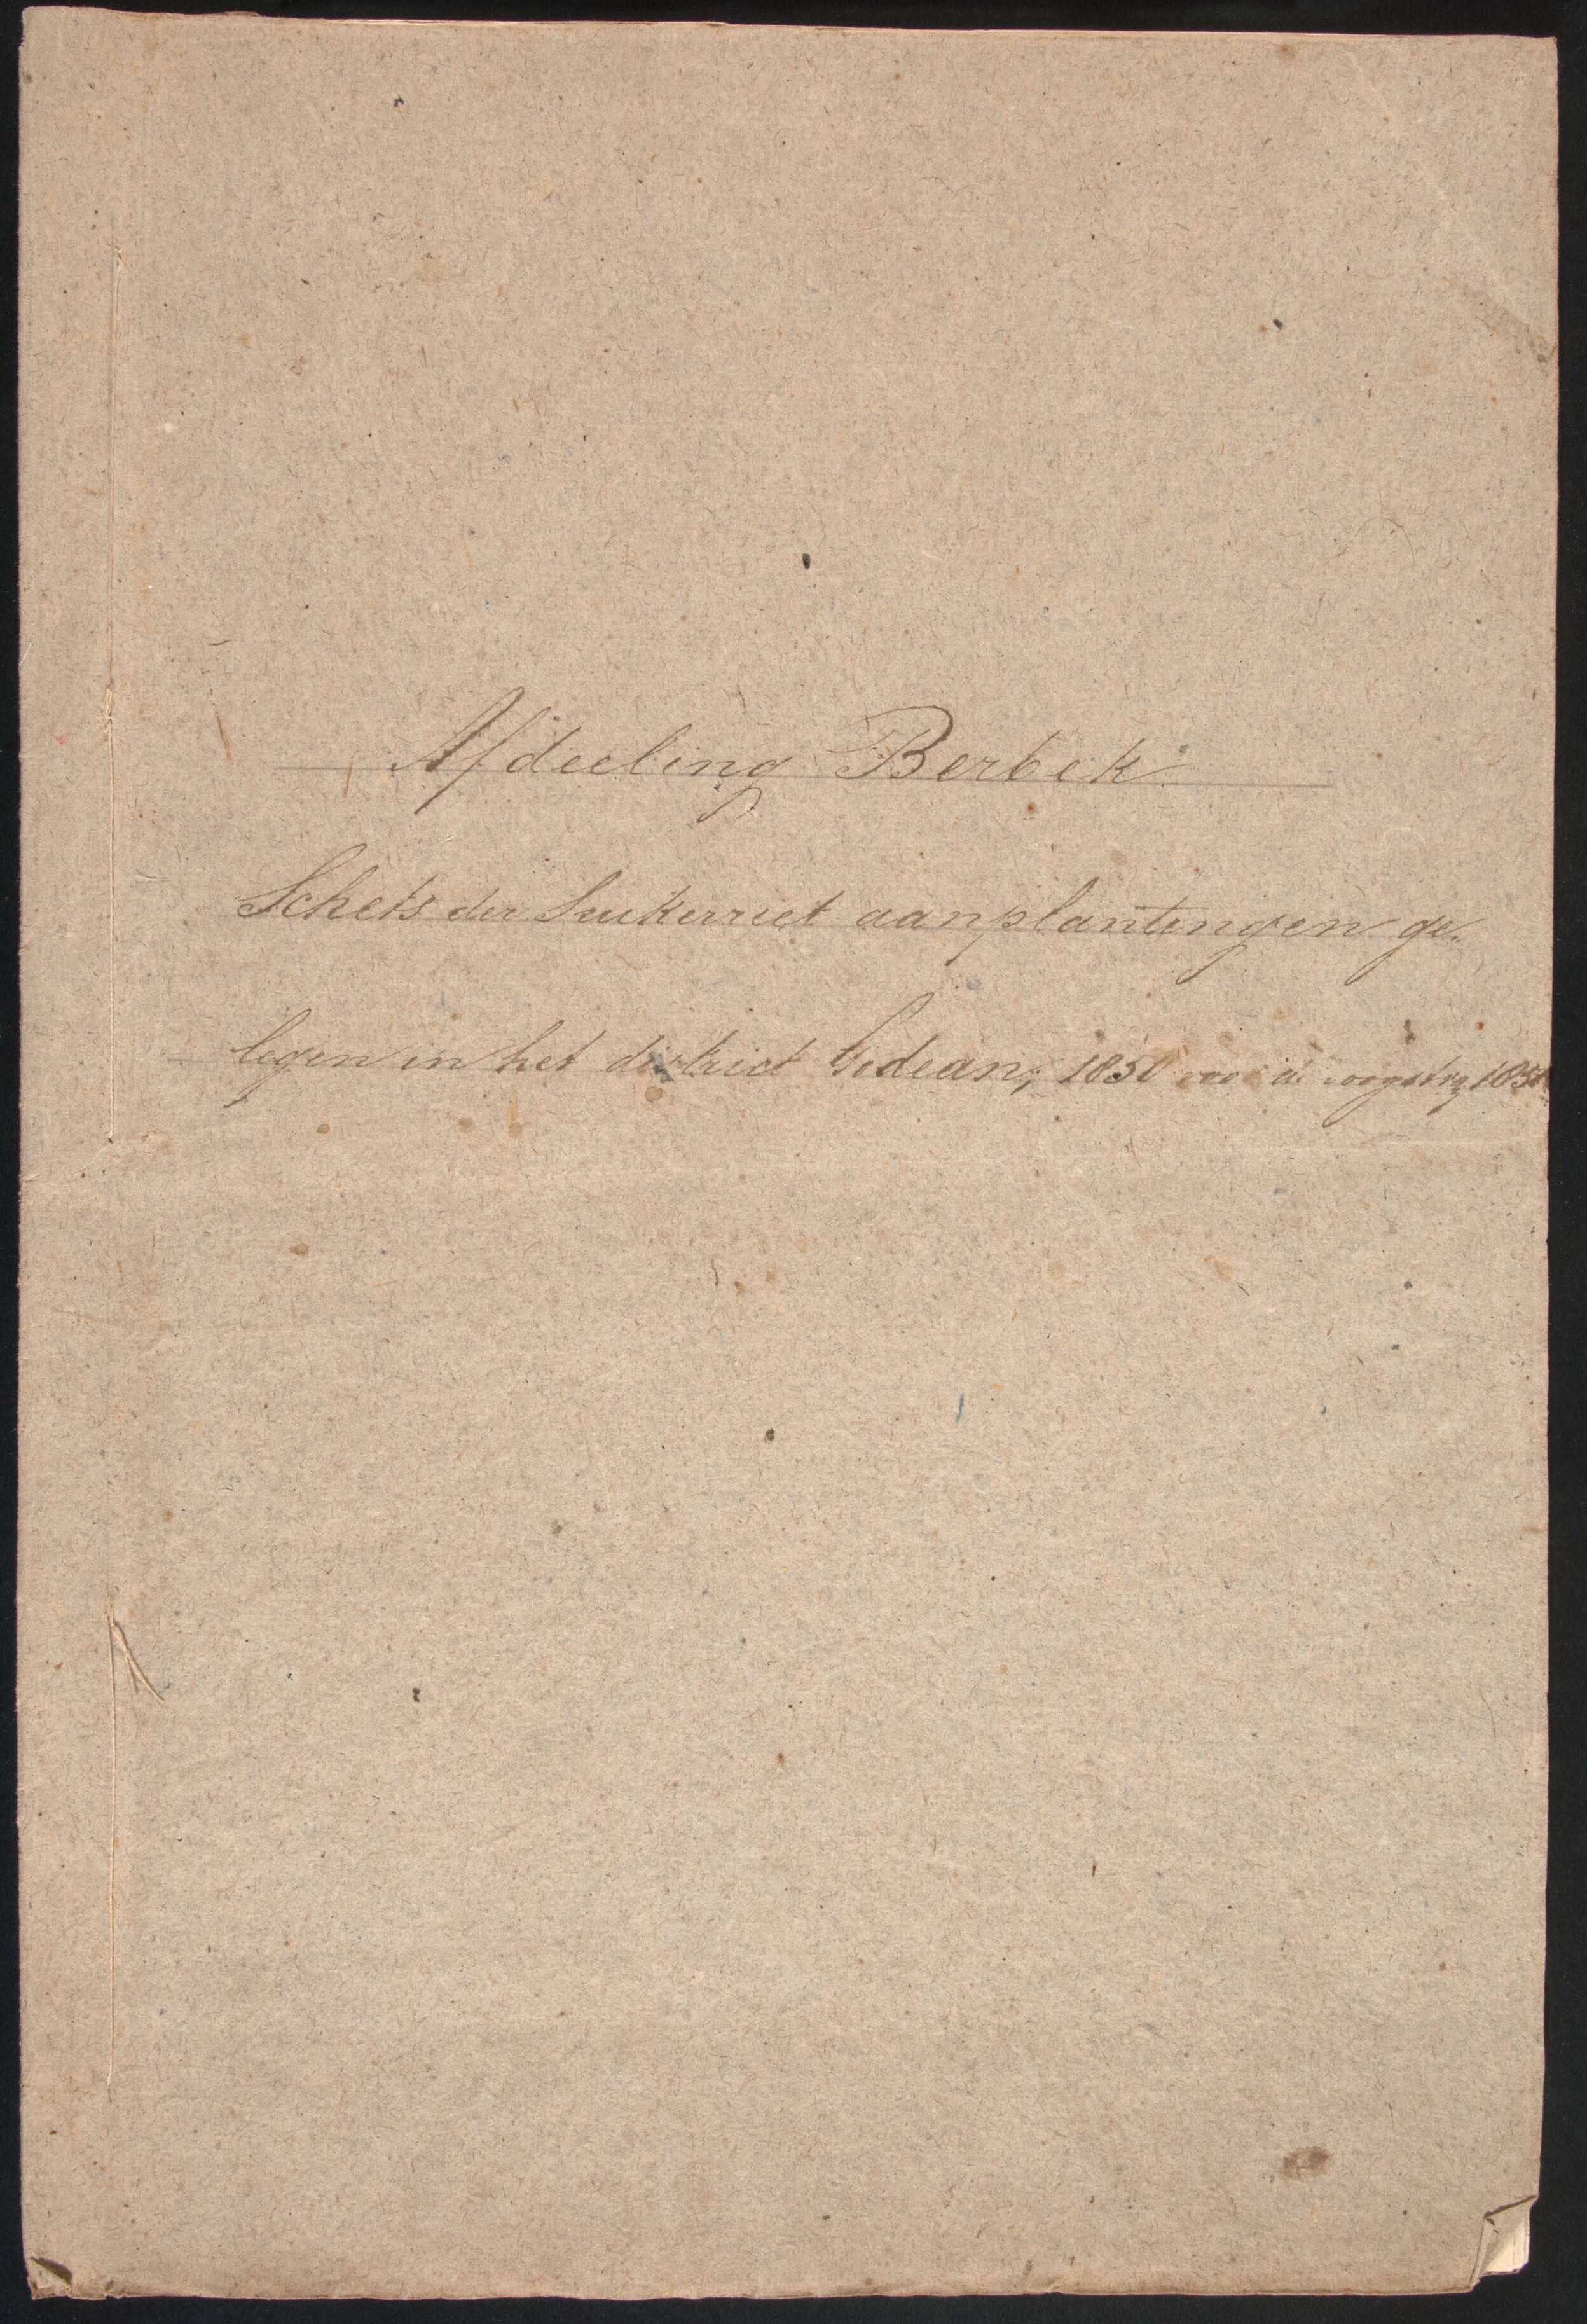 Afdeeling Berbek.
Schets der Suikerriet aanplantingen ge„
legen in het district Godean, 1850 voor de oogst van 185